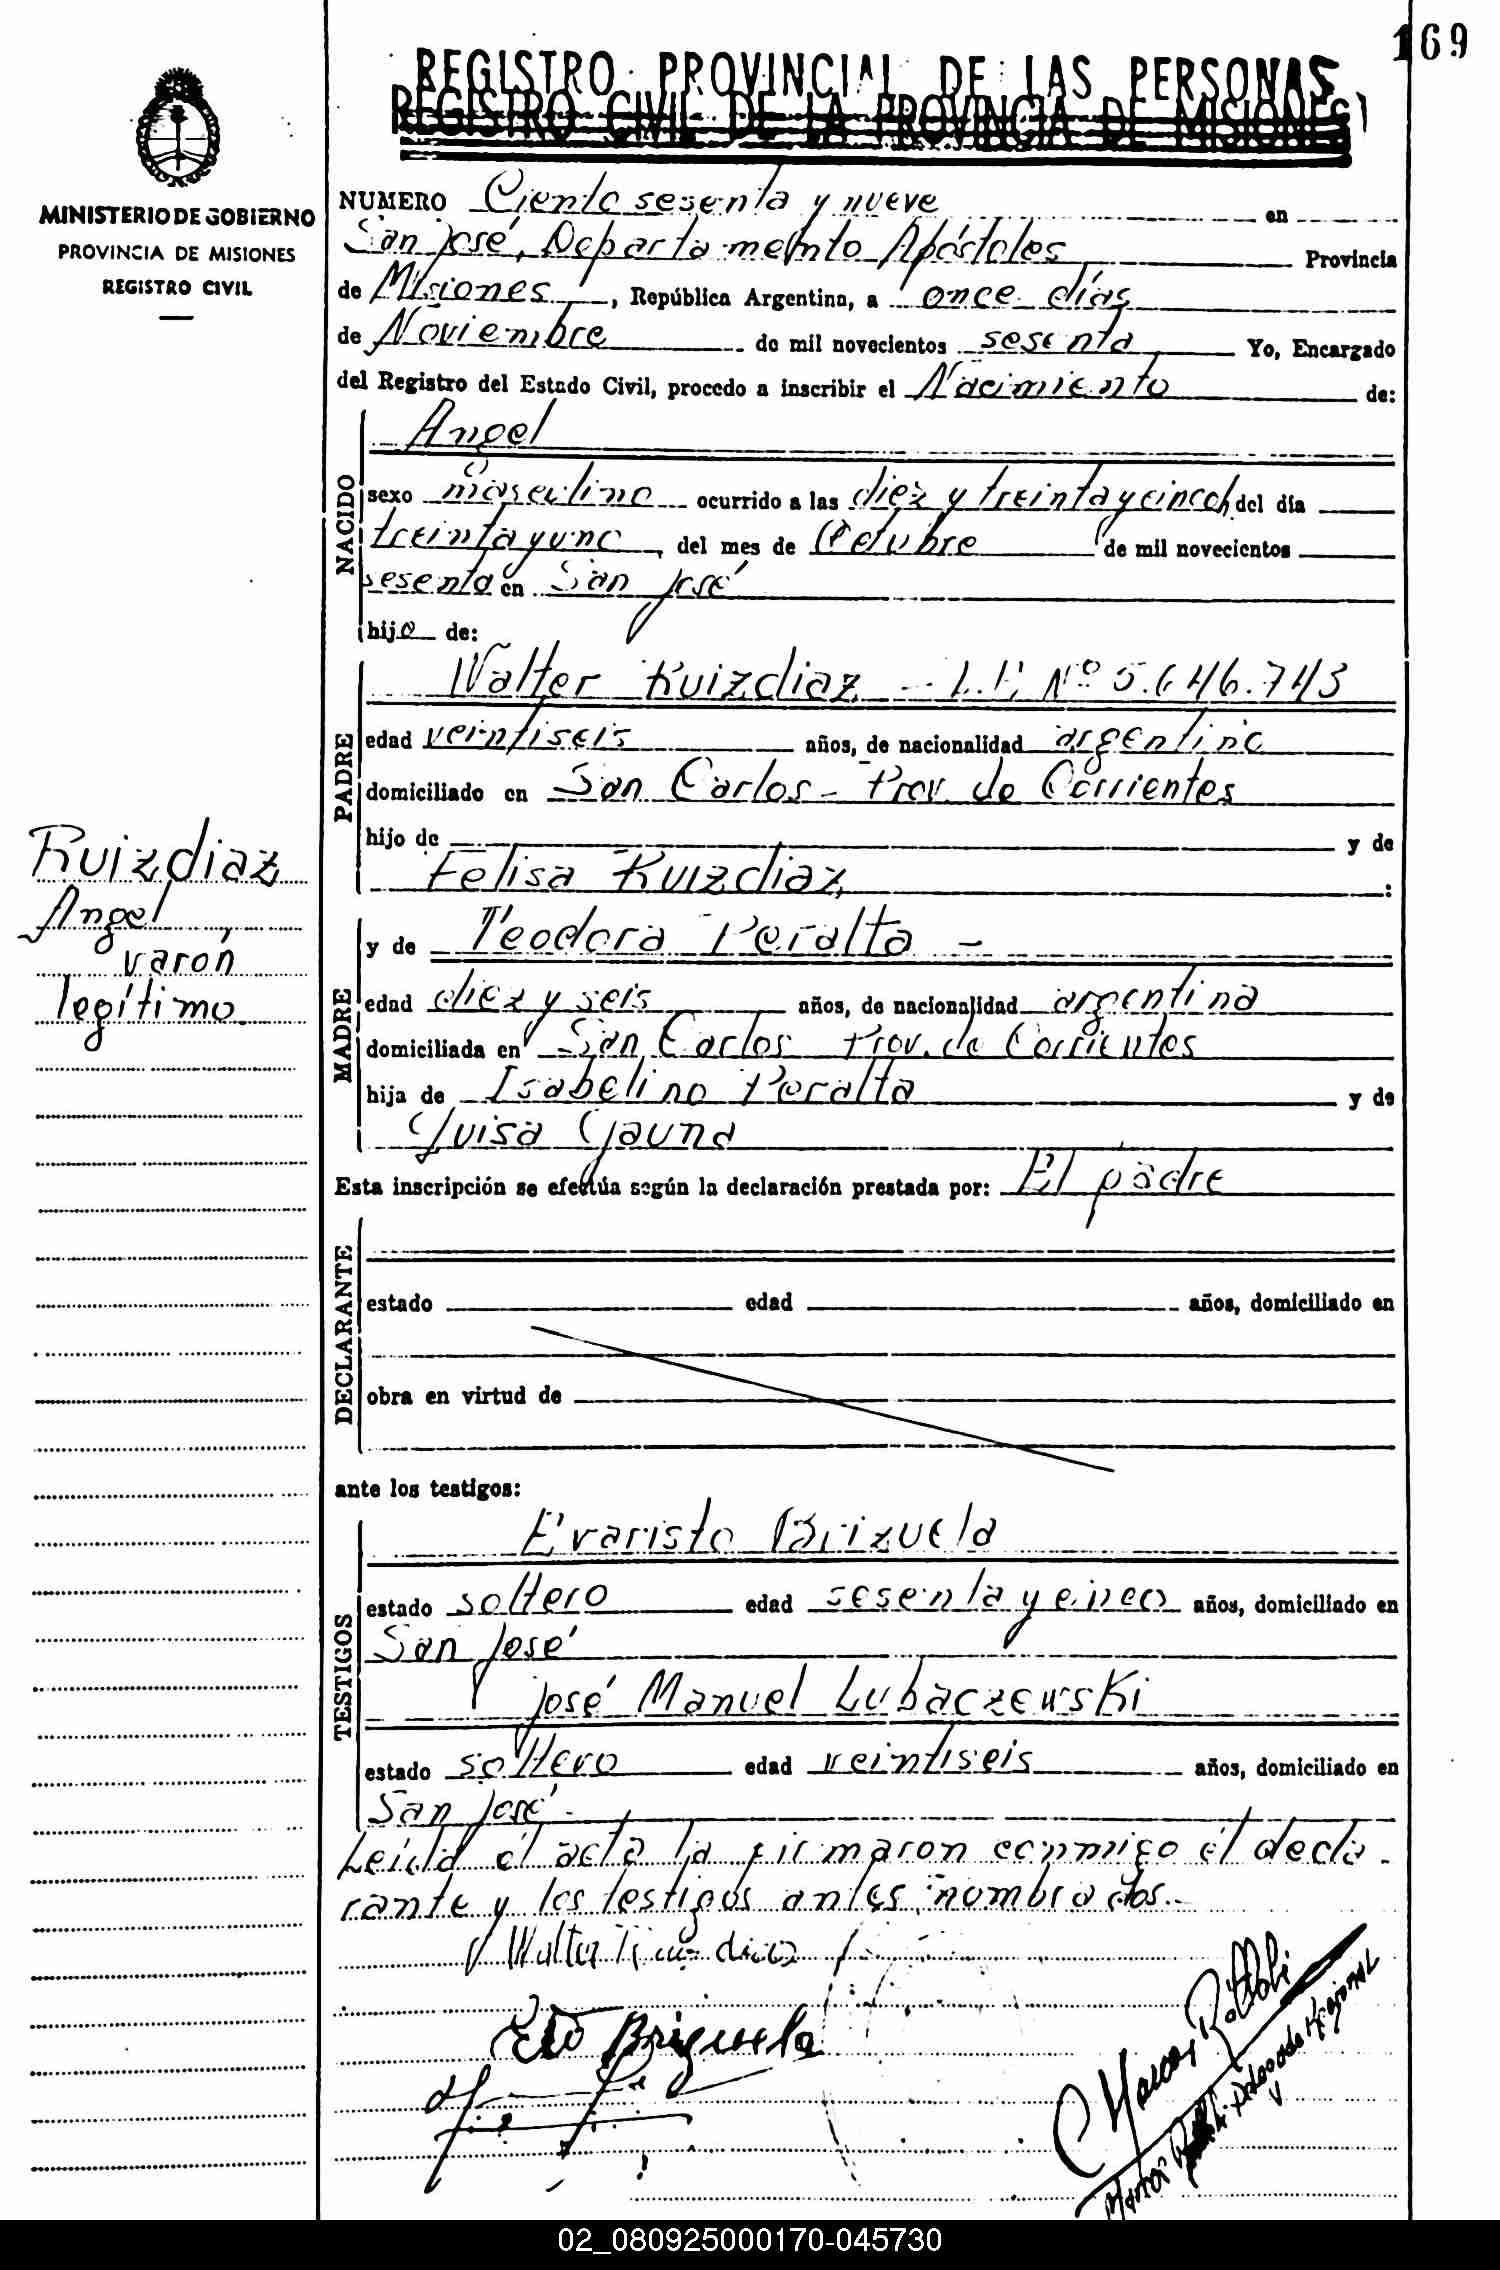 169
REGISTRO PROVINCIAL DE LAS PERSONAS
REGISTRO CIVIL DE LA PROVINCIA DE MISIONES
MINISTERIO DE GOBIERNO
PROVINCIA DE MISIONES
REGISTRO CIVIL
NUMERO Ciento sesenta y nueve en
San José, Departamento Apóstoles Provincia
de Misiones, República Argentina, a once días
de Noviembre de mil novecientos sesenta Yo, Encargado
del Registro del Estado Civil, procedo a inscribir el Nacimiento de:
NACIDO
Angel
sexo masculino ocurrido a las diez y treinta y cinco h del día
treinta y uno, del mes de Octubre de mil novecientos
sesenta en San José
hijo de:
PADRE
Walter Ruizdiaz - L.E Nº 5.646.743
edad veintiseis años, de nacionalidad argentino
domiciliado en San Carlos - Prov. de Corrientes
hijo de y de
Felisa Ruizdiaz :
Ruizdiaz
Angel,
varón
legítimo.
MADRE
y de Teodora Peralta -
edad diez y seis años, de nacionalidad argentina
domiciliada en San Carlos Prov. de Corrientes
hija de Isabelino Peralta y de
Luisa Gauna
Esta inscripción se efectúa según la declaración prestada por: El padre
DECLARANTE
estado edad años, domiciliado en
obra en virtud de
ante los testigos:
TESTIGOS
Evaristo Brizuela
estado soltero edad sesenta y cinco años, domiciliado en
San José
José Manuel Lubaczewski
estado soltero edad veintiseis años, domiciliado en
San José -
Leída el acta la firmaron conmigo el decla-
rante y los testigos antes nombrados.-
Walter Ruiz diaz
Eto Brizuela
Marcos
Delegado Regional
02_080925000170-045730